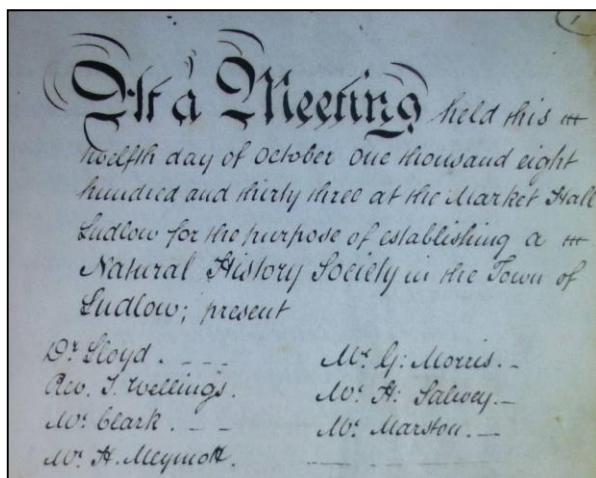 1
At a Meeting held this
twelfth day of October one thousand eight
hundred and thirty three at the Market Hall
Ludlow for the purpose of establishing a
Natural History Society in the Town of
Ludlow; present
Dr Lloyd. - - - Mr G: Morris. -
Rev. T. Wellings. Mr H: Salwey. -
Mr Clark. - - Mr Marston. -
Mr H. Meymott.